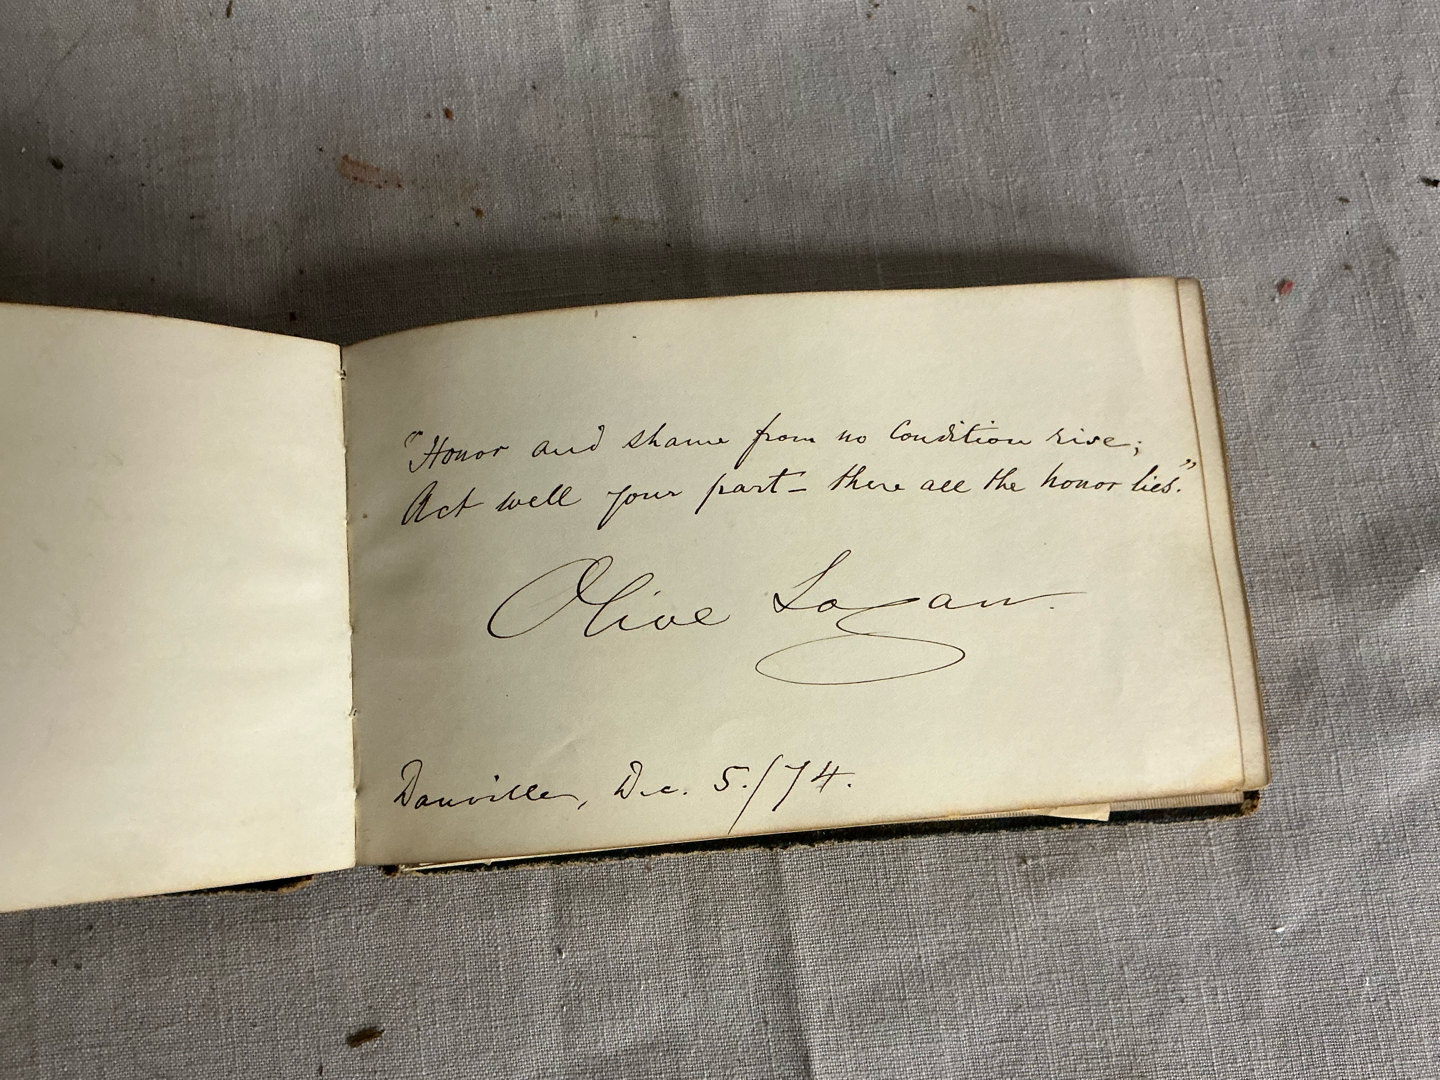 "Honor and shame from no Condition rise;
Act well your part – there all the honor lies."
Olive Logan.
Danville, Dec. 5./74.